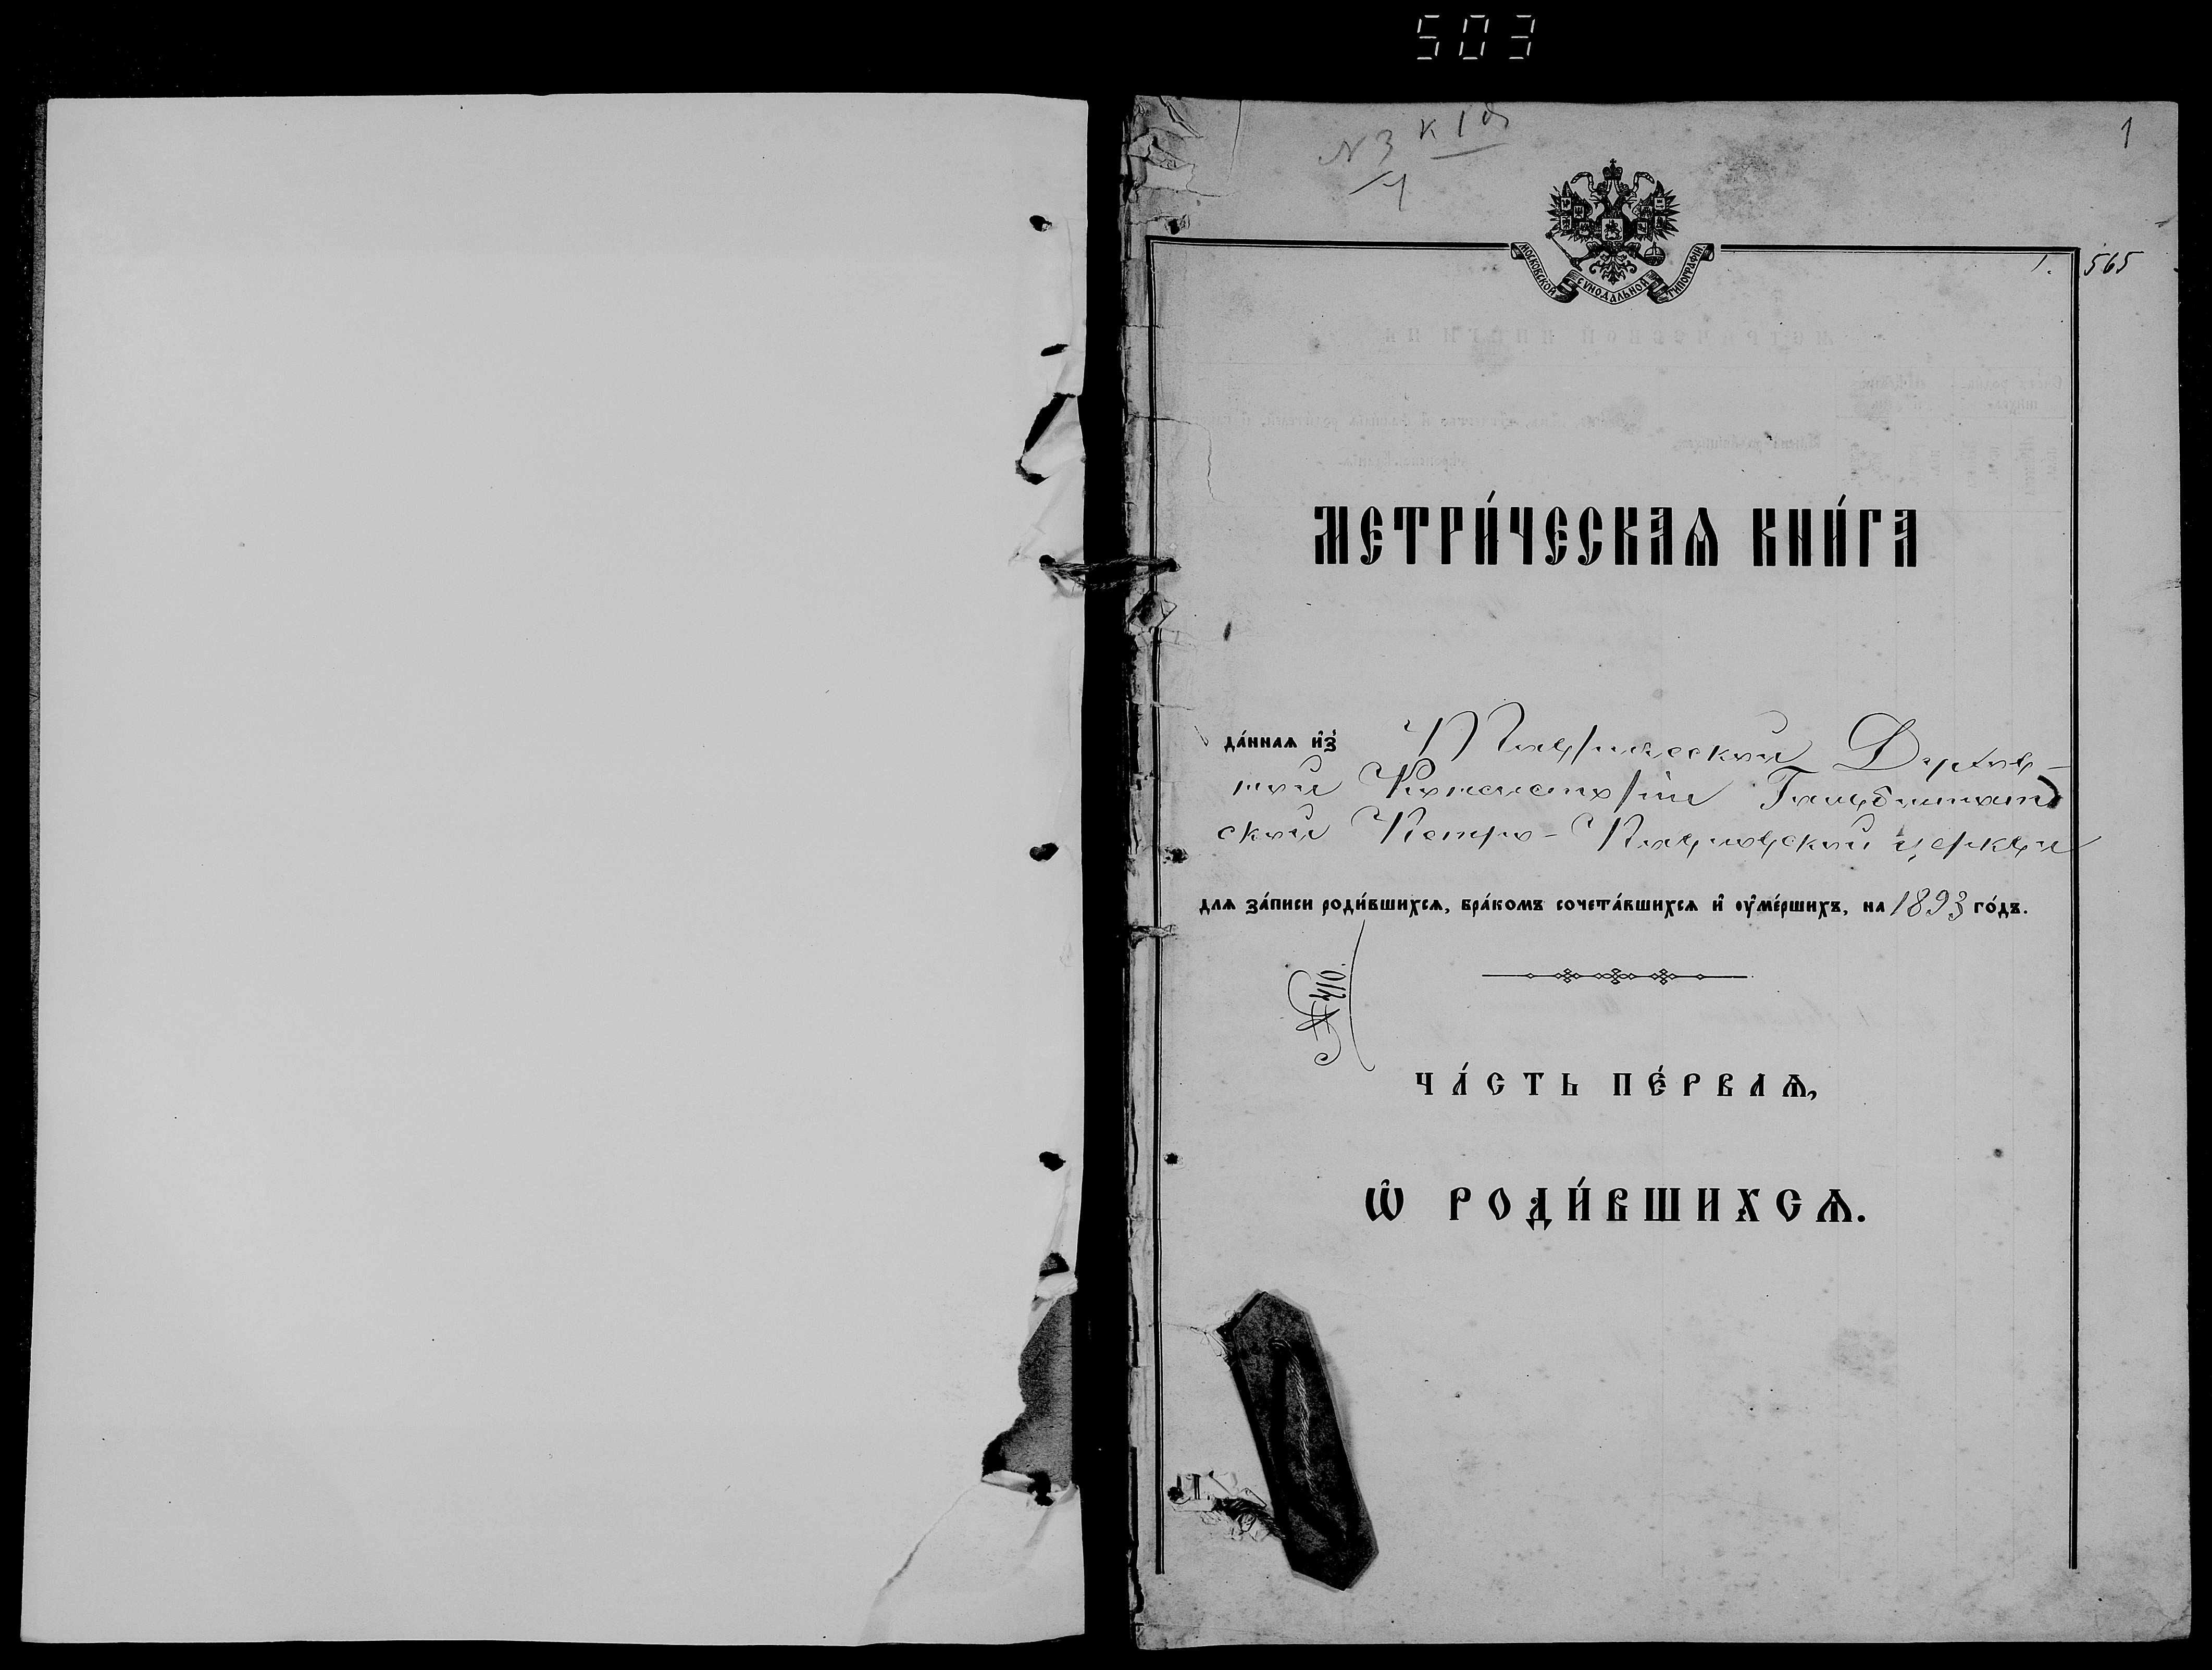 503
N 3 к 1 д
4
1
МОСКОВСКОЙ СѴНОДАЛЬНОЙ ТИПОГРАФІИ
1. 565
МЕТРИ́ЧЕСКАѦ КНИ́ГА
да́ннаѧ и҆з̾ Таврической Духов-
ной Консисторіи
ской Петро-Павловской церкви
для за́писи роди́вшихсѧ, бра́комъ сочета́вшихсѧ и҆ ᲂу҆ме́ршихъ, на 1893 го́дъ.
№ 410.
ЧА́СТЬ ПЕ́РВАѦ,
Ѡ҆ РОДИ́ВШИХСѦ.